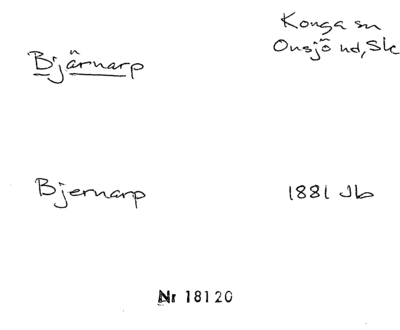 Konga sn
Onsjö hd, Sk
Bjärnarp
Bjernarp
1881 Jb
Nr 18120